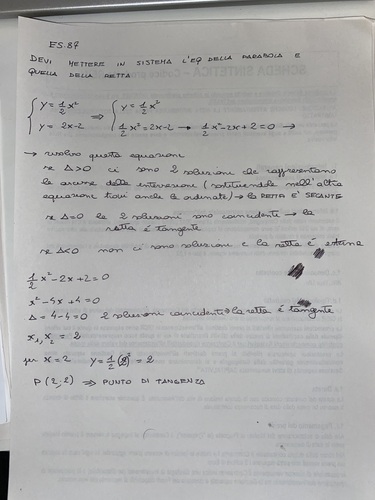 ES. 89
DEVI METTERE IN SISTEMA L'EQ DELLA PARABOLA E
QUELLA DELLA RETTA
{ y = 1/2 x² ⇒ { y = 1/2 x²
{ y = 2x-2 { 1/2 x² = 2x-2 → 1/2 x² - 2x + 2 = 0 →
→ risolvo questa equazione
se Δ>0 ci sono 2 soluzioni che rappresentano
le ascisse delle intersezioni (sostituendole nell'altra
equazione trovi anche le ordinate) → la RETTA E' SECANTE
se Δ=0 le 2 soluzioni sono coincidenti → la
retta è tangente
se Δ<0 non ci sono soluzioni e la retta è esterna
1/2 x² - 2x + 2 = 0
x² - 4x + 4 = 0
Δ = 4-4 = 0 2 soluzioni coincidenti → la retta è tangente
x₁, x₂ = 2
per x = 2 y = 1/2 (2)² = 2
P (2; 2) ⇒ PUNTO DI TANGENZA